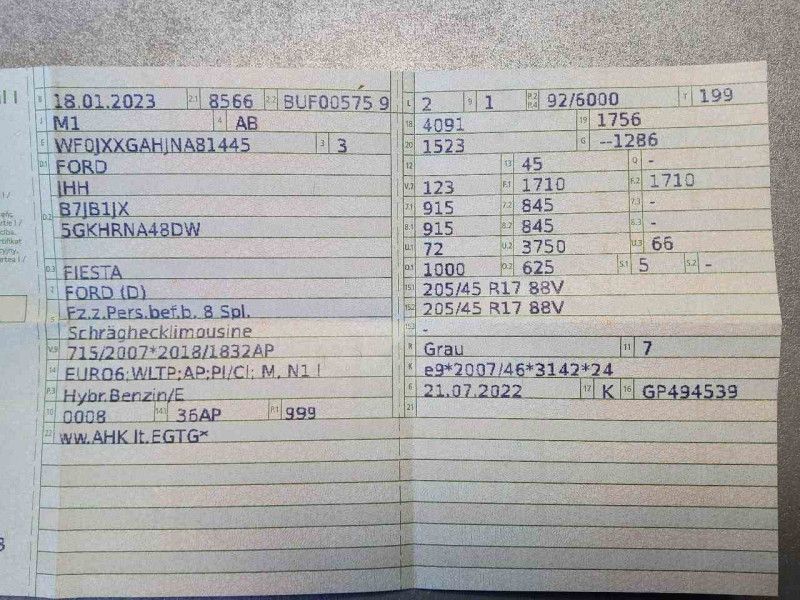 B 18.01.2023 2.1 8566 2.2 BUF00575 9
J M1 4 AB
E WF0JXXGAHJNA81445 3 3
D.1 FORD
JHH
D.2 B7JB1JX
5GKHRNA48DW
D.3 FIESTA
2 FORD (D)
5 Fz.z.Pers.bef.b. 8 Spl.
Schräghecklimousine
V.9 715/2007*2018/1832AP
14 EURO6;WLTP;AP;PI/CI; M, N1 I
P.3 Hybr.Benzin/E
10 0008 14.1 36AP P.1 999
22 ww.AHK lt.EGTG*
L 2 9 1 P.2 P.4 92/6000 T 199
18 4091 19 1756
20 1523 G --1286
12 13 45 Q -
V.7 123 F.1 1710 F.2 1710
7.1 915 7.2 845 7.3 -
8.1 915 8.2 845 8.3 -
U.1 72 U.2 3750 U.3 66
O.1 1000 O.2 625 S.1 5 S.2 -
15.1 205/45 R17 88V
15.2 205/45 R17 88V
15.3 -
R Grau 11 7
K e9*2007/46*3142*24
6 21.07.2022 17 K 16 GP494539
21